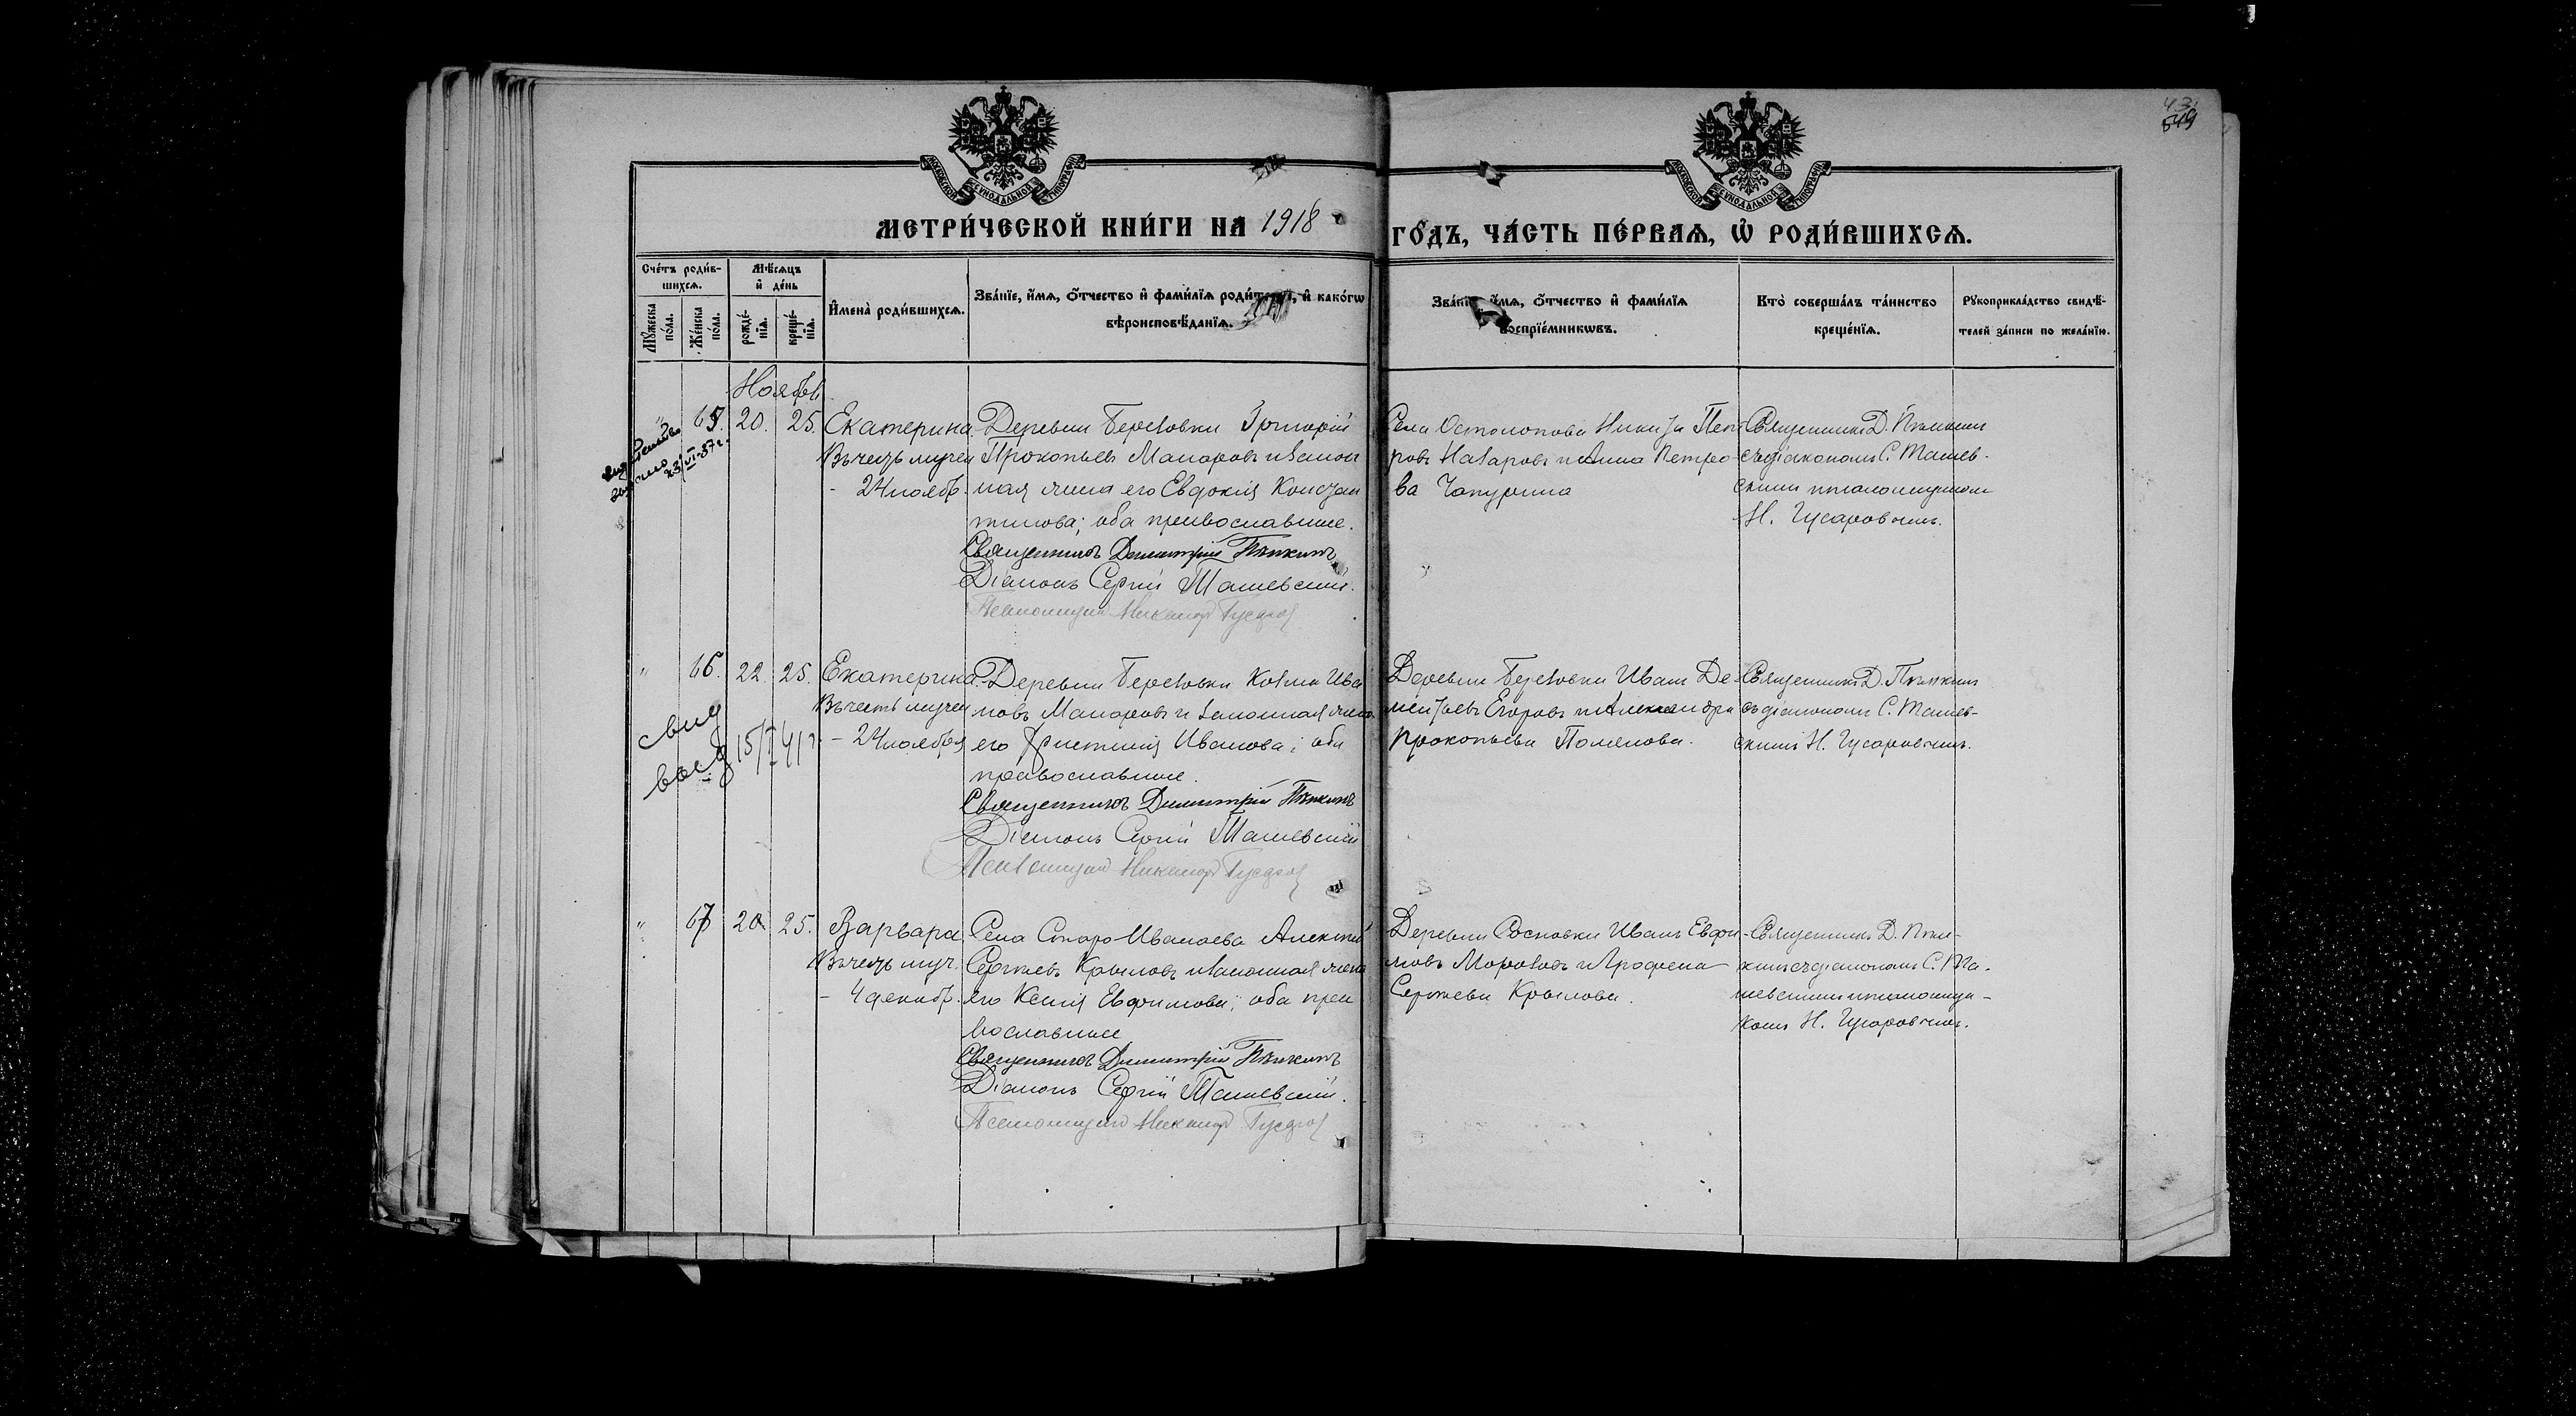 43.
549
МОСКОВСКОЙ СУНОДАЛЬНОЙ ТИПОГРАФІИ
МОСКОВСКОЙ СУНОДАЛЬНОЙ ТИПОГРАФІИ
МЕТРИ́ЧЕСКОЙ КНИ́ГИ НА 1918
ГО́ДЪ, ЧА́СТЬ ПЕ́РВАѦ, Ѡ҆ РОДИ́ВШИХСѦ.
Сче́тъ роди́в-
шихсѧ.
Мꙋ́жеска
по́ла.
Же́нска
по́ла.
Мѣ́сѧцъ
и҆ де́нь
рожде́-
нїѧ.
креще́-
нїѧ.
И҆мена̀ роди́вшихсѧ.
Зва́нїе, и҆́мѧ, ѻ҆́тчество и҆ фами́лїѧ роди́т и҆ како́гѡ
вѣроисповѣ́данїѧ.
Зва́нїе, и҆́мѧ, ѻ҆́тчество и҆ фами́лїѧ
воспрїе́мникѡвъ.
Кто̀ соверша́лъ та́инство
креще́нїѧ.
Рꙋкоприкла́дство свидѣ́-
телей за́писи по жела́нїю.
Ноябрь
" 65. 20. 25. Екатерина
Въ честь мучен
- 24 ноябр.
23/VI-37г.
Деревни Березовки Григорій
Прокопьевъ Маноровъ и закон
ная жена его Евдокія Констан
тинова; оба православные.
Священникъ Димитрій Пѣнкинъ
Діаконъ Сергій Ташевскій.
Псаломщик Никанор Гусаров
Села Остолопова Никита Пет
ровъ Назаровъ и Анна Петро
ва Чапурина
Священникъ Д. Пѣнкинъ
съ діакономъ С. Ташев-
скимъ и псаломщикомъ
Н. Гусаровымъ.
" 66. 22. 25. Екатерина.
Въ честь мучен
- 24 ноября
свид
выд 15/I 41 г.
Деревни Березовки Козма Ива
новъ Маноровъ и законная жена
его Христинія Иванова; оба
православные.
Священникъ Димитрій Пѣнкинъ
Діаконъ Сергій Ташевскій
Псаломщик Никанор Гусаров
Деревни Березовки Иванъ Де-
ментьевъ Егоровъ и Александра
Прокопьева Поленова.
Священникъ Д. Пѣнкинъ
съ діакономъ С. Ташев-
скимъ Н. Гусаровымъ.
" 67 20 25. Варвара
Въ честь муч.
- 4 декабр.
Села Старо-Иванаева Алексѣй
Сергѣевъ Крыловъ и законная жена
его Ксенія Евфимова; оба пра
вославные
Священникъ Димитрій Пѣнкинъ
Діаконъ Сергій Ташевскій.
Псаломщикъ Никанор Гусаров
Деревни Сосновки Иванъ Евфи-
мовъ Морозовъ и Агрофена
Сергѣева Крылова.
Священникъ Д. Пѣн-
кинъ съ діакономъ С. Та-
шевскимъ и псаломщи-
комъ Н. Гусаровымъ.